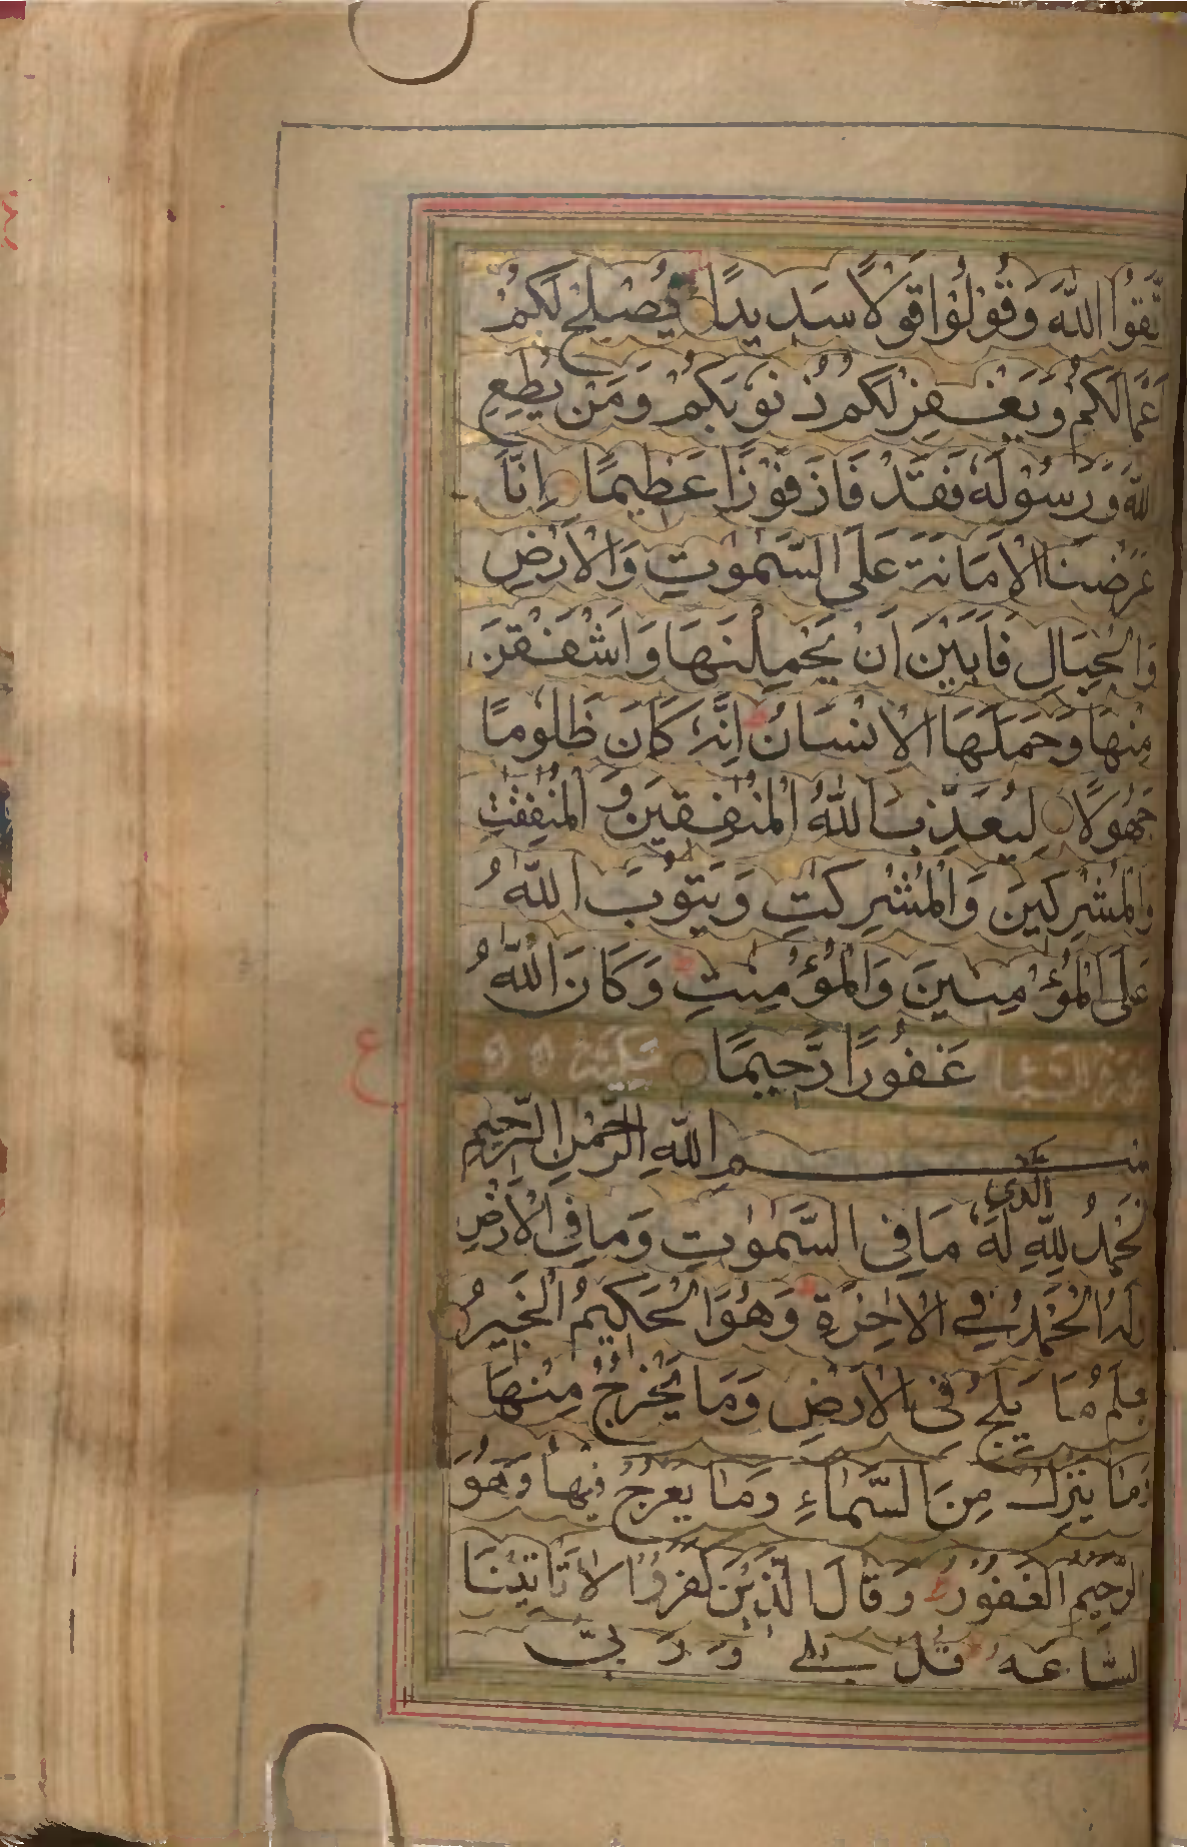 تَّقُوا اللّٰهَ وَقُوْلُوْا قَوْلًا سَدِيدًا يُصْلِحْ لَكُمْ
عْمَالَكُمْ وَيَغْفِرْ لَكُمْ ذُنُوْبَكُمْ وَمَنْ يُطِعِ
للّٰهَ وَرَسُوْلَهٗ فَقَدْ فَازَ فَوْزًا عَظِيمًا اِنَّا
عَرَضْنَا الْاَمَانَةَ عَلَى السَّمٰوٰتِ وَالْاَرْضِ
وَالْجِبَالِ فَاَبَيْنَ اَنْ يَحْمِلْنَهَا وَاَشْفَقْنَ
مِنْهَا وَحَمَلَهَا الْاِنْسَانُ اِنَّهٗ كَانَ ظَلُوْمًا
جَهُوْلًا لِيُعَذِّبَ اللّٰهُ الْمُنٰفِقِيْنَ وَ الْمُنٰفِقٰتِ
وَالْمُشْرِكِيْنَ وَالْمُشْرِكٰتِ وَيَتُوْبَ اللّٰهُ
عَلَى الْمُؤْمِنِيْنَ وَالْمُؤْمِنٰتِ وَكَانَ اللّٰهُ
غَفُوْرًا رَّحِيمًا
ع
بِسْمِ اللّٰهِ الرَّحْمٰنِ الرَّحِيْمِ
لْحَمْدُ لِلّٰهِ الَّذِي لَهٗ مَا فِى السَّمٰوٰتِ وَمَا فِى الْاَرْضِ
وَلَهُ الْحَمْدُ فِي الْاٰخِرَةِ وَهُوَ الْحَكِيْمُ الْخَبِيْرُ
يَعْلَمُ مَا يَلِجُ فِى الْاَرْضِ وَمَا يَخْرُجُ مِنْهَا
وَمَا يَنْزِلُ مِنَ السَّمَاءِ وَمَا يَعْرُجُ فِيْهَا وَهُوَ
الرَّحِيْمُ الْغَفُوْرُ وَقَالَ الَّذِيْنَ كَفَرُوْا لَا تَاْتِيْنَا
السَّاعَةُ قُلْ بَلٰى وَرَبِّىْ